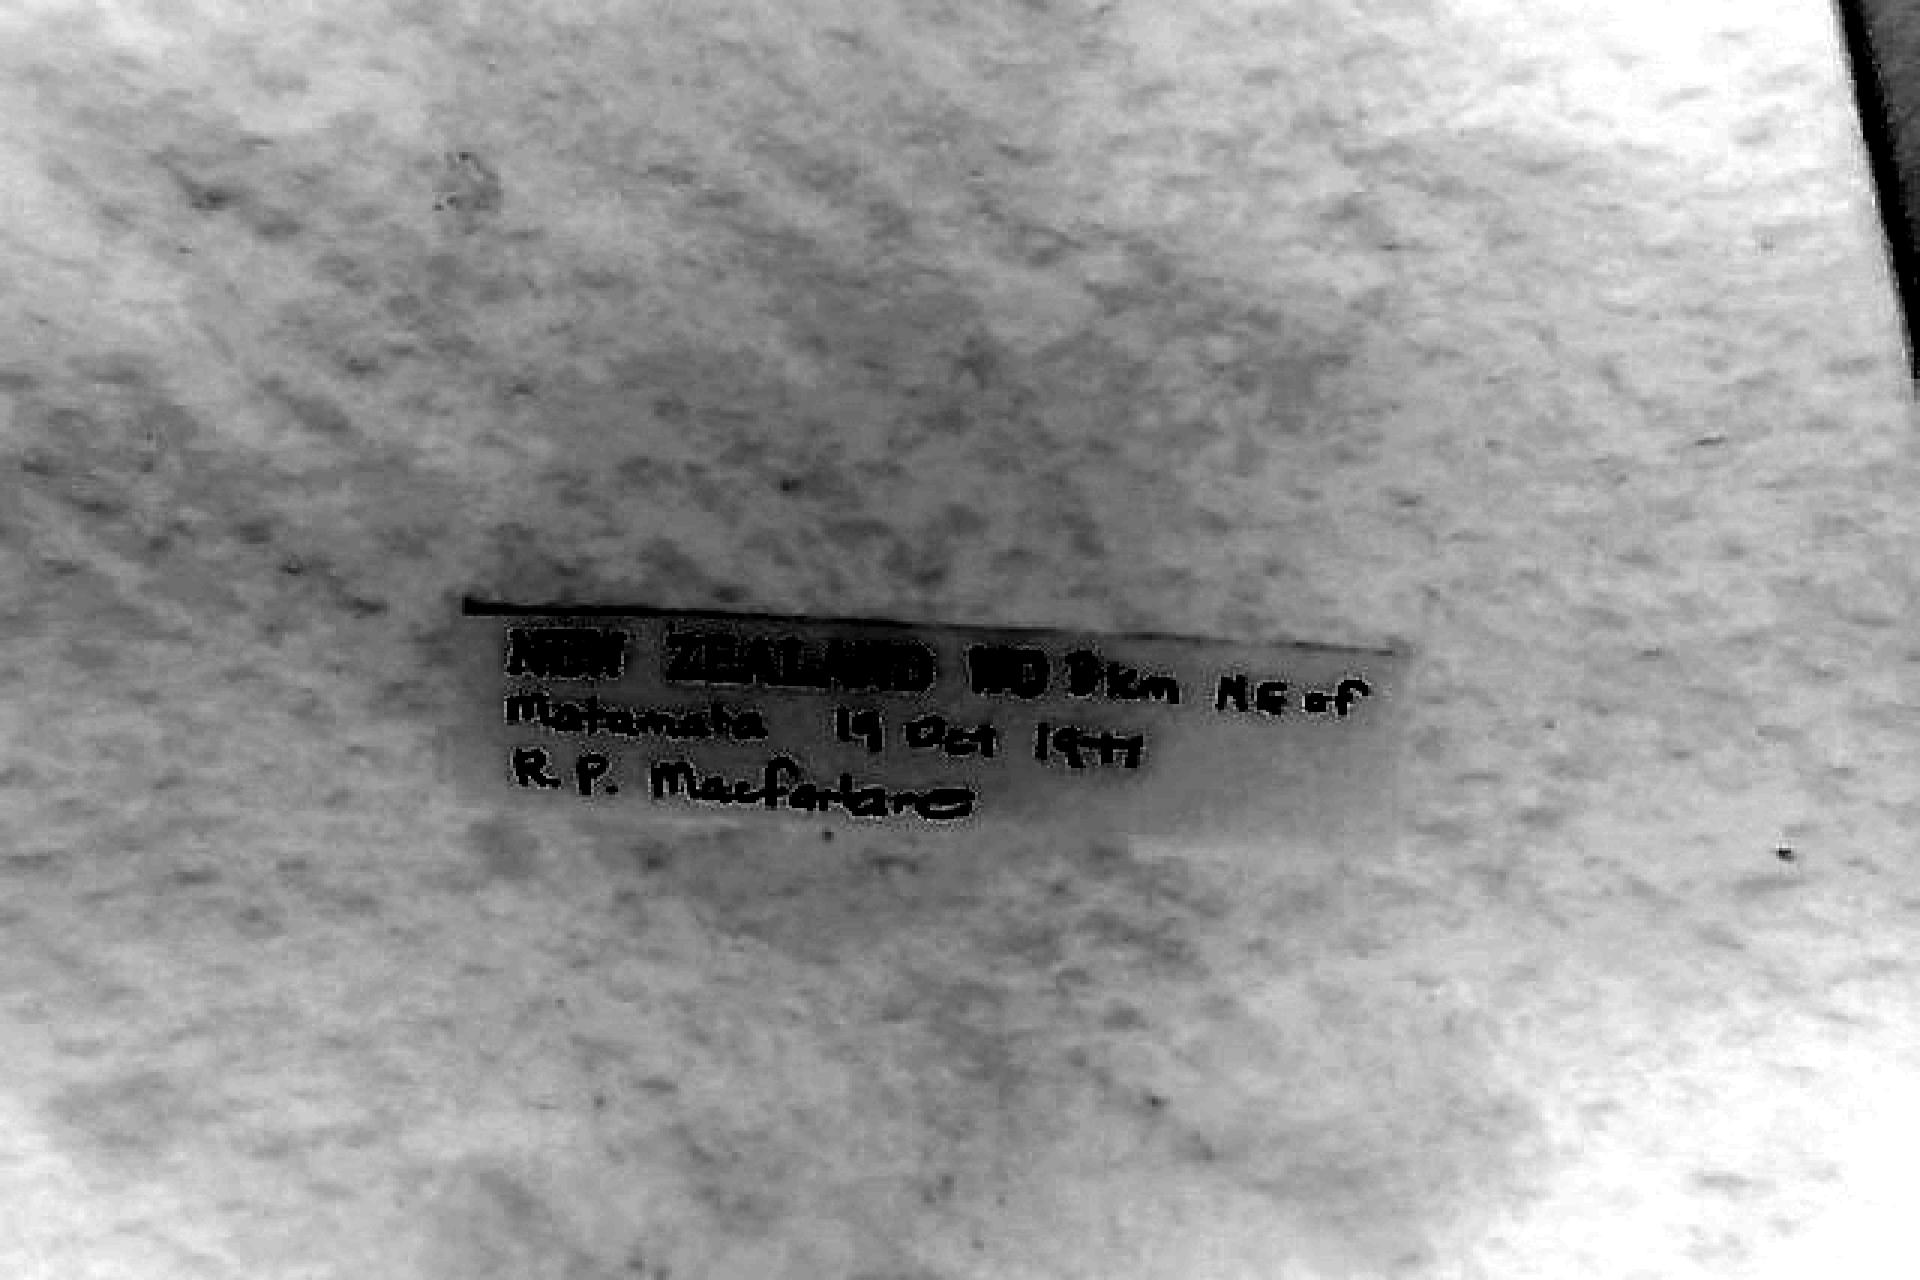 NEW ZEALAND WO 8km NE of
Matamata 19 Oct 1977
R. P. Macfarlane